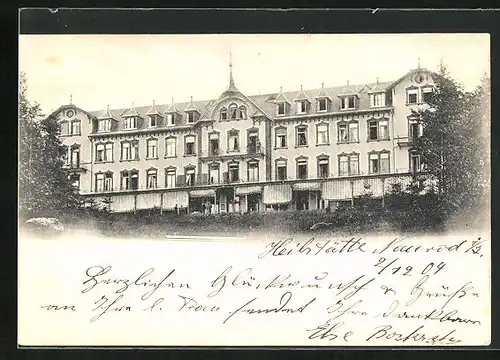 Heilstätte Naurod
2/12 04
Herzlichen Glückwunsch & Grüße
an Ihre l. Frau sendet Ihre dankbare
Else